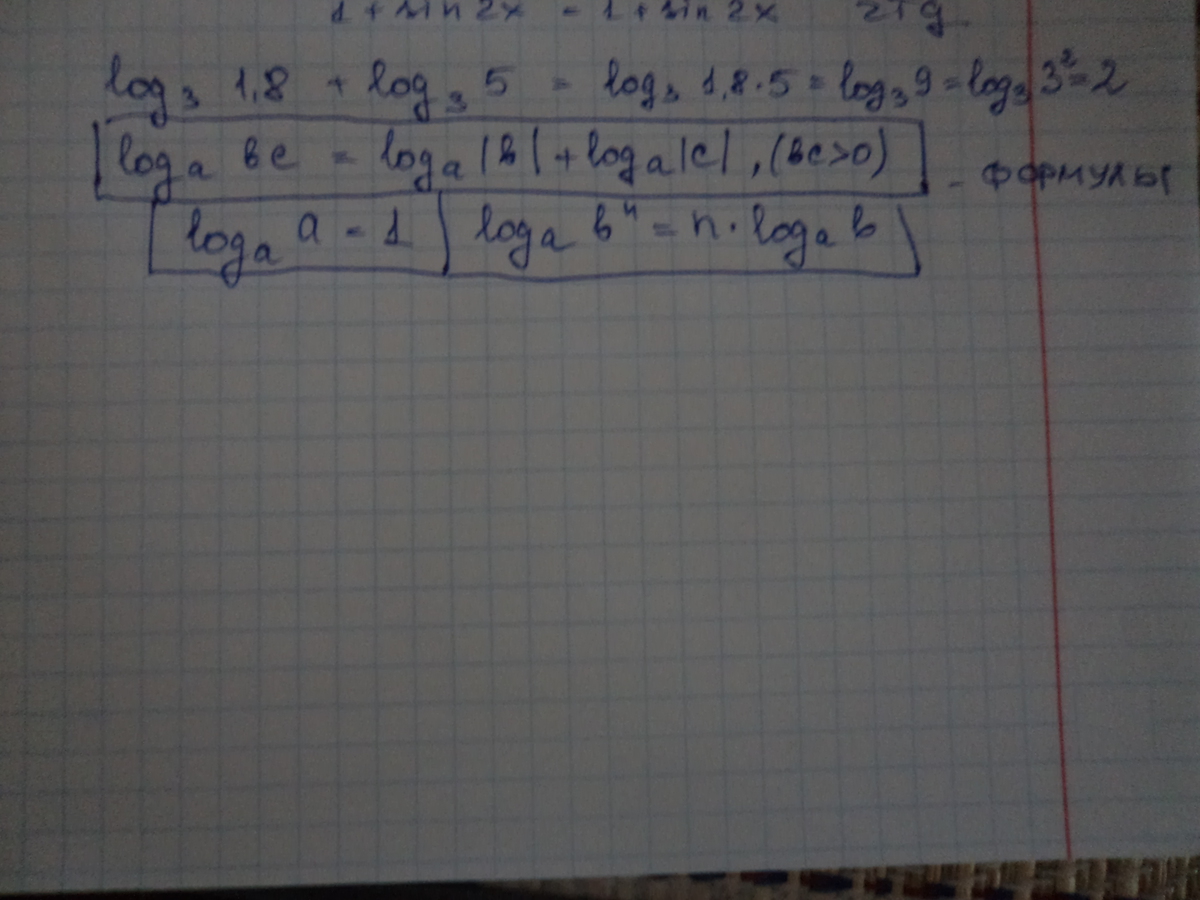 1 + sin 2x = 1 + sin 2x
log₃ 1,8 + log₃ 5 = log₃ 1,8·5 = log₃ 9 = log₃ 3² = 2
logₐ вc = logₐ |в| + logₐ |c| , (вc>0) - формулы
logₐ a = 1 logₐ вⁿ = n·logₐ в